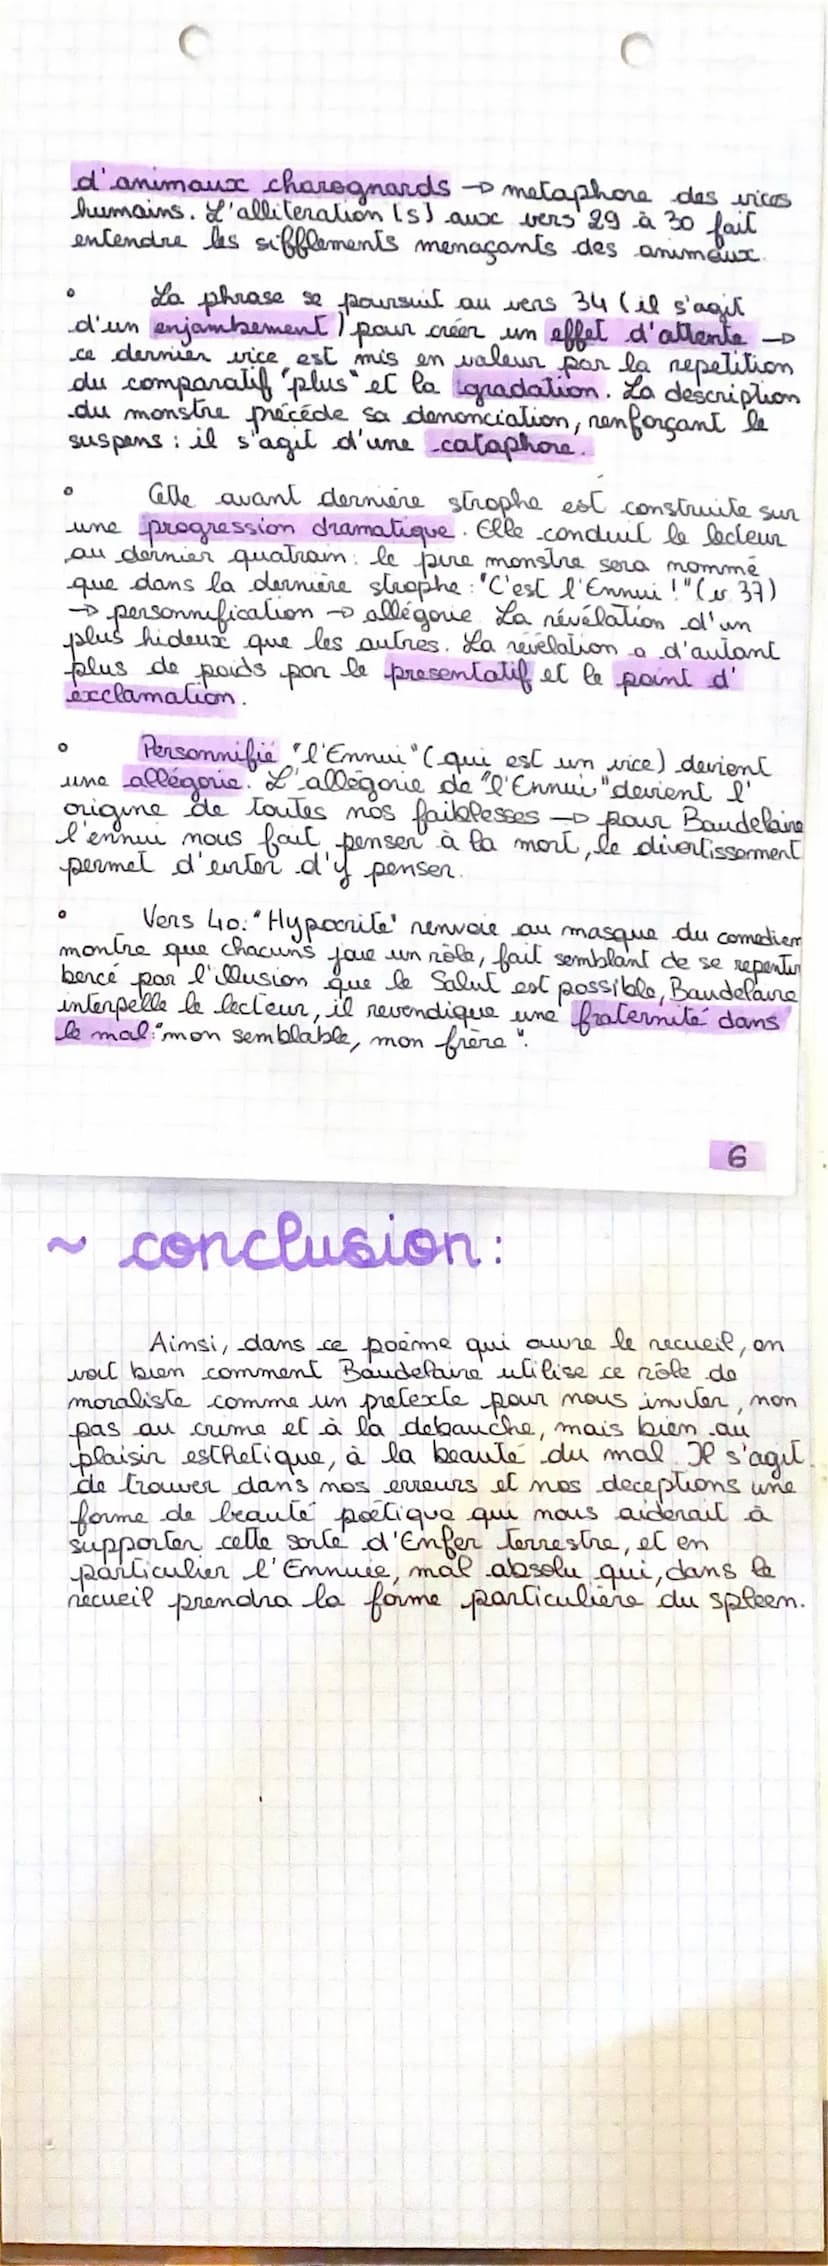 d'animaux charognards → metaphore des vices
humains. L'alliteration (s) aux vers 29 à 30 fait
entendre les sifflements menaçants des animaux.
° La phrase se poursuit au vers 34 (il s'agit
d'un enjambement) pour créer un effet d'attente →
ce dernier vice est mis en valeur par la repetition
du comparatif "plus" et la gradation. La description
du monstre précéde sa denonciation, renforçant le
suspens : il s'agit d'une cataphore.
° Cette avant derniére strophe est construite sur
une progression dramatique. Elle conduit le lecteur
au dernier quatrain : le pire monstre sera nommé
que dans la derniére strophe : "C'est l'Ennui !" (v. 37)
→ personnification → allégorie. La révélation d'un
plus hideux que les autres. La révélation a d'autant
plus de poids par le presentatif et le point d'
exclamation.
° Personnifié "l'Ennui" (qui est un vice) devient
une allégorie. L'allégorie de "l'Ennui" devient l'
origine de toutes nos faiblesses → pour Baudelaire
l'ennui nous fait penser à la mort, le divertissement
permet d'eviter d'y penser.
° Vers 40 : "Hypocrite" renvoie au masque du comedien
montre que chacuns joue un rôle, fait semblant de se repentir
bercé par l'illusion que le Salut est possible, Baudelaire
interpelle le lecteur, il revendique une fraternité dans
le mal : "mon semblable, mon frère".
6
~ conclusion :
Ainsi, dans ce poéme qui ouvre le recueil, on
voit bien comment Baudelaire utilise ce rôle de
moraliste comme un pretexte pour nous inviter, non
pas au crime et à la debauche, mais bien au
plaisir esthetique, à la beauté du mal. Il s'agit
de trouver dans nos erreurs et nos deceptions une
forme de beauté poëtique qui nous aiderait à
supporter cette sorte d'Enfer terrestre, et en
particulier l'Ennuie, mal absolu qui, dans le
recueil prendra la forme particuliére du spleen.